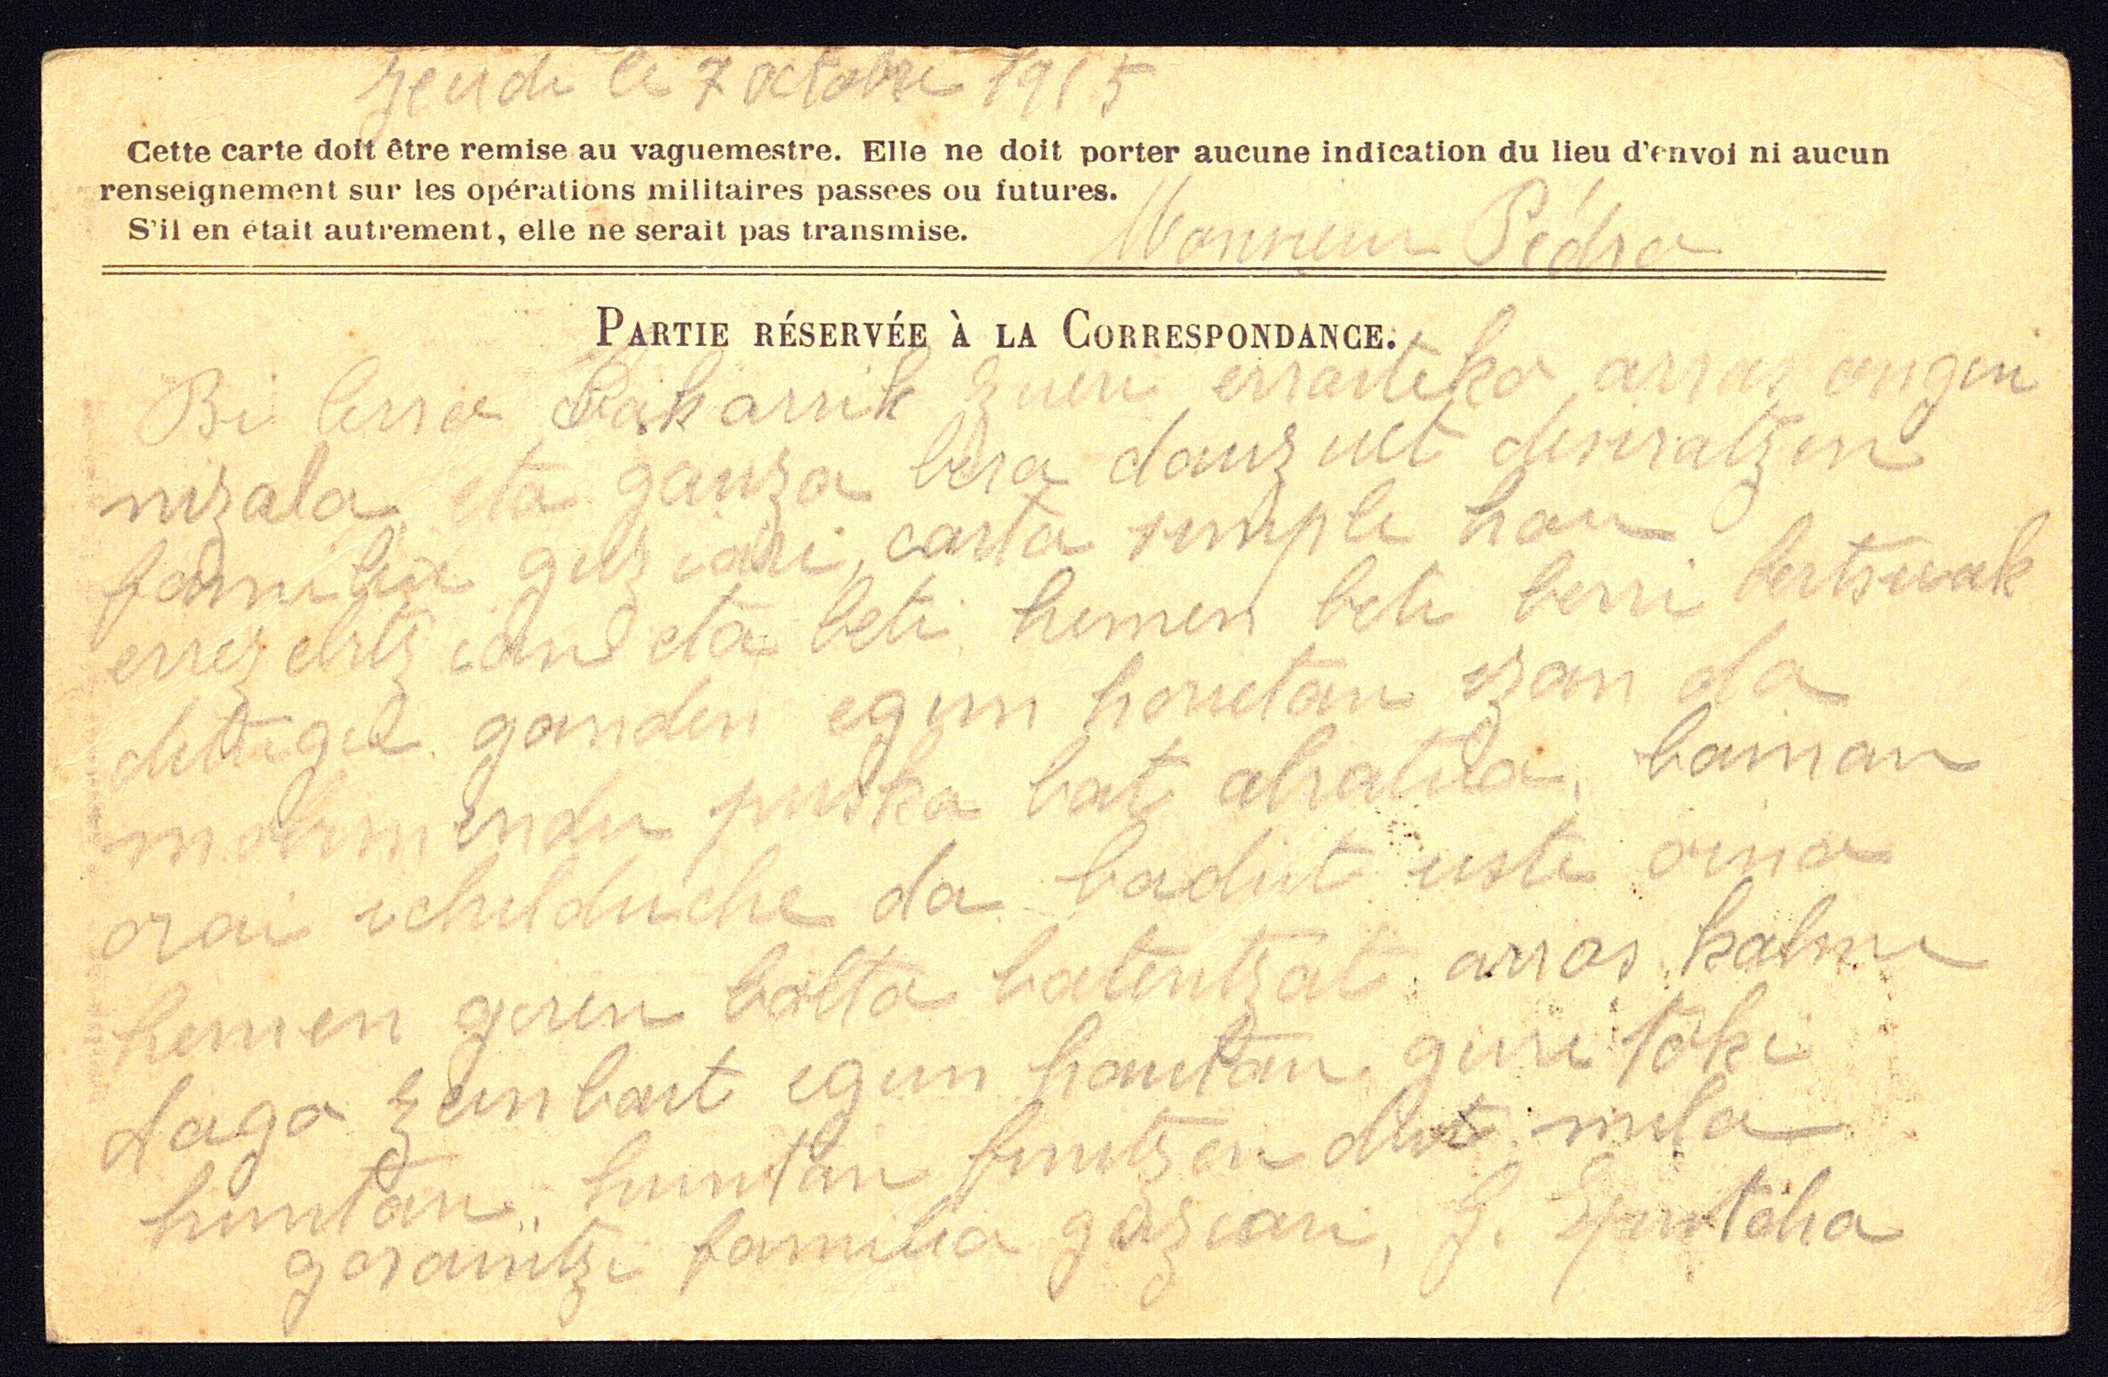 Jeudi le 7 octobre 1915
Cette carte doit être remise au vaguemestre. Elle ne doit porter aucune indication du lieu d'envoi ni aucun
renseignement sur les opérations militaires passées ou futures.
S'il en était autrement, elle ne serait pas transmise.
Monsieur Pédro
PARTIE RÉSERVÉE À LA CORRESPONDANCE.
Bi lerro bakarrik zueri erraiteko arras ongui
nizala eta gauza bera dauzuet desiratzen
familia guziari, carta simple hau
errezebitzian eta beti hemen beti berri bertsuak
dittugu. ganden egun hauetan izan da
mobimendu puska bat alratua, bainan
orai ichilduche da badut uste oino
hemen giren bolta batentzat arras kalme
dago zeinbait egun hautan gure toki
huntan, huntan finitzen dut mila
goraintzi familia guziari, J.